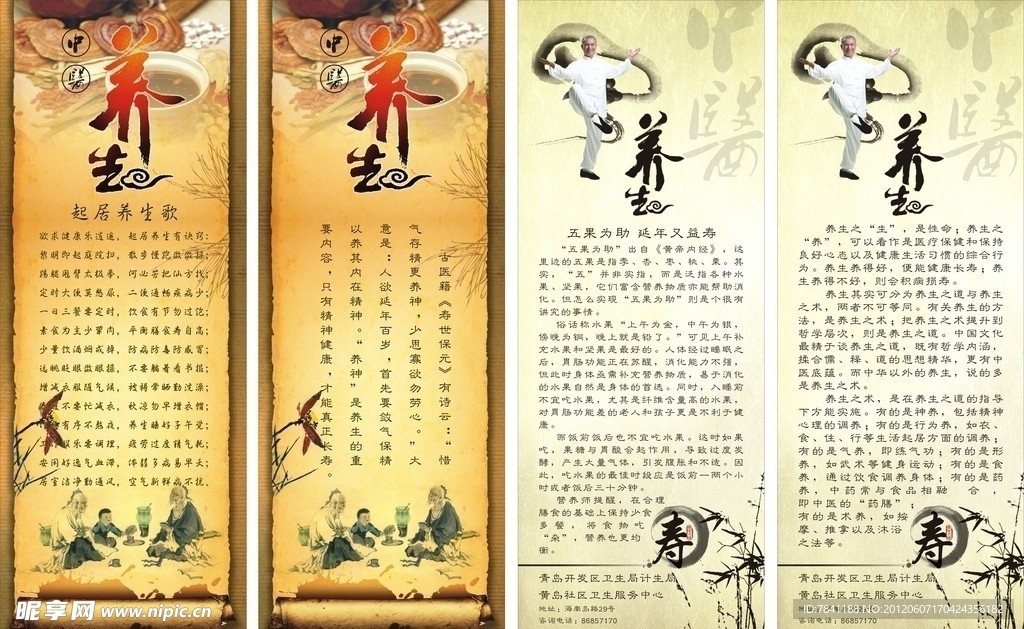 中
醫
养生
起居养生歌
欲求健康乐逍遥，起居养生有诀窍；
黎明即起庭院扫，散步慢跑做做操；
踢腿甩臂太极拳，何必苦把仙方找；
定时大便莫憋尿，二便通畅疾病少；
一日三餐要定时，饮食有节勿过饱；
素食为主少荤肉，平衡膳食寿自高；
少量饮酒烟戒掉，防病防毒防感冒；
远眺眨眼做眼操，不要躺着看书报；
增减衣服随气候，被褥常晒勤洗澡；
不要忙减衣，秋凉勿早增衣帽；
有序不熬夜，养生睡好子午觉；
娱乐要调理，疲劳过度精气耗；
安闲好通气血滞，体弱多病易早夭；
居室洁净勤通风，空气新鲜病不扰。
中
醫
养生
古医籍《寿世保元》有诗云：“惜
气存精更养神，少思寡欲勿劳心。”大
意是：人欲延年百岁，首先要敛气保精
以养其内在精神。“养神”是养生的重
要内容，只有精神健康，才能真正长寿。
中醫
养生
五果为助 延年又益寿
“五果为助”出自《黄帝内经》，这
里边的五果是指李、杏、枣、桃、栗。其
实，“五”并非实指，而是泛指各种水
果、坚果，它们富含营养物质亦能帮助消
化。但怎么实现“五果为助”则是个很有
讲究的事情。
俗话称水果“上午为金，中午为银，
傍晚为铜，晚上就是铅了。”可见上午补
充水果和坚果是最好的。人体经过睡眠之
后，胃肠功能正在苏醒，消化能力不强，
但此时身体亟需补充营养物质，易于消化
的水果自然是身体的首选。同时，入睡前
不宜吃水果，尤其是纤维含量高的水果，
对胃肠功能差的老人和孩子更是不利于健
康。
而饭前饭后也不宜吃水果。这时如果
吃，果糖与胃酸会起作用，导致过度发
酵，产生大量气体，引发腹胀和不适。因
此，吃水果的最佳时段应是饭前一两个小
时或者饭后三十分钟。
营养师提醒，在合理
膳食的基础上保持少食
多餐，将食物吃
“杂”，营养也更均
衡。
寿
青岛开发区卫生局计生局
黄岛社区卫生服务中心
地址：海南岛路29号
咨询电话：86857170
中醫
养生
养生之“生”，是性命；养生之
“养”，可以看作是医疗保健和保持
良好心态以及健康生活习惯的综合行
为。养生养得好，便能健康长寿；养
生养得不好，则会积病损寿。
养生其实可分为养生之道与养生
之术，两者不可等同。有关养生的方
法，是养生之术；把养生之术提升到
哲学层次，则是养生之道。中国文化
最精于谈养生之道，既有哲学内涵，
揉合儒、释、道的思想精华，更有中
医底蕴。而中华以外的养生，说的多
是养生之术。
养生之术，是在养生之道的指导
下方能实施。有的是神养，包括精神
心理的调养；有的是行为养，如衣、
食、住、行等生活起居方面的调养；
有的是气养，即练气功；有的是形
养，如武术等健身运动；有的是食
养，通过饮食调养身体；有的是药
养，中药常与食品相融合，
即中医的“药膳”；
有的是术养，如按
摩、推拿以及沐浴
之法等。
寿
青岛开发区卫生局计生局
黄岛社区卫生服务中心
咨询电话：86857170
昵享网 www.nipic.cn
ID:7841188 NO:20120607170424356182